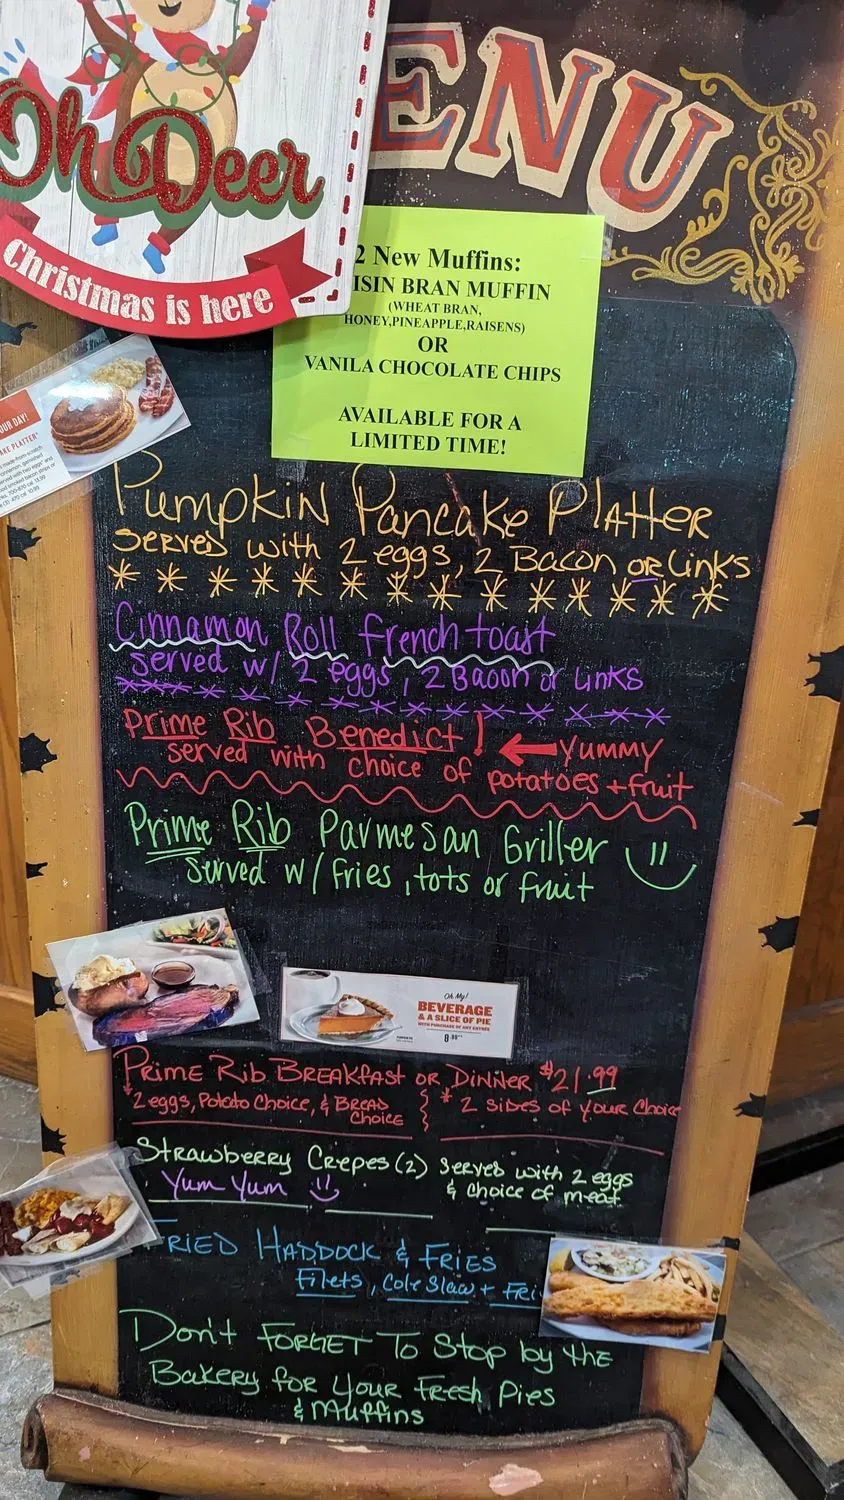 ENU
Oh Deer
Christmas is here
2 New Muffins:
ISIN BRAN MUFFIN
(WHEAT BRAN,
HONEY,PINEAPPLE,RAISENS)
OR
VANILA CHOCOLATE CHIPS
AVAILABLE FOR A
LIMITED TIME!
OUR DAY!
AKE PLATTER*
Pumpkin Pancake Platter
served with 2 eggs, 2 Bacon or Links
Cinnamon Roll french toast
served w/ 2 eggs, 2 Bacon or Links
Prime Rib Benedict! ← YUMMY
served with choice of potatoes + fruit
Prime Rib Parmesan Griller
Served w/ fries, tots or fruit
Oh My!
BEVERAGE
& A SLICE OF PIE
WITH PURCHASE OF ANY ENTRÉE
Prime Rib Breakfast or Dinner $21.99
* 2 eggs, Potato Choice, & Bread Choice
* 2 sides of your Choice
Strawberry Crepes (2) Served with 2 eggs
& choice of meat
Yum Yum
Fried Haddock & Fries
Filets, Cole Slaw + Fri
Don't Forget To Stop by the
Bakery for Your Fresh Pies
& Muffins